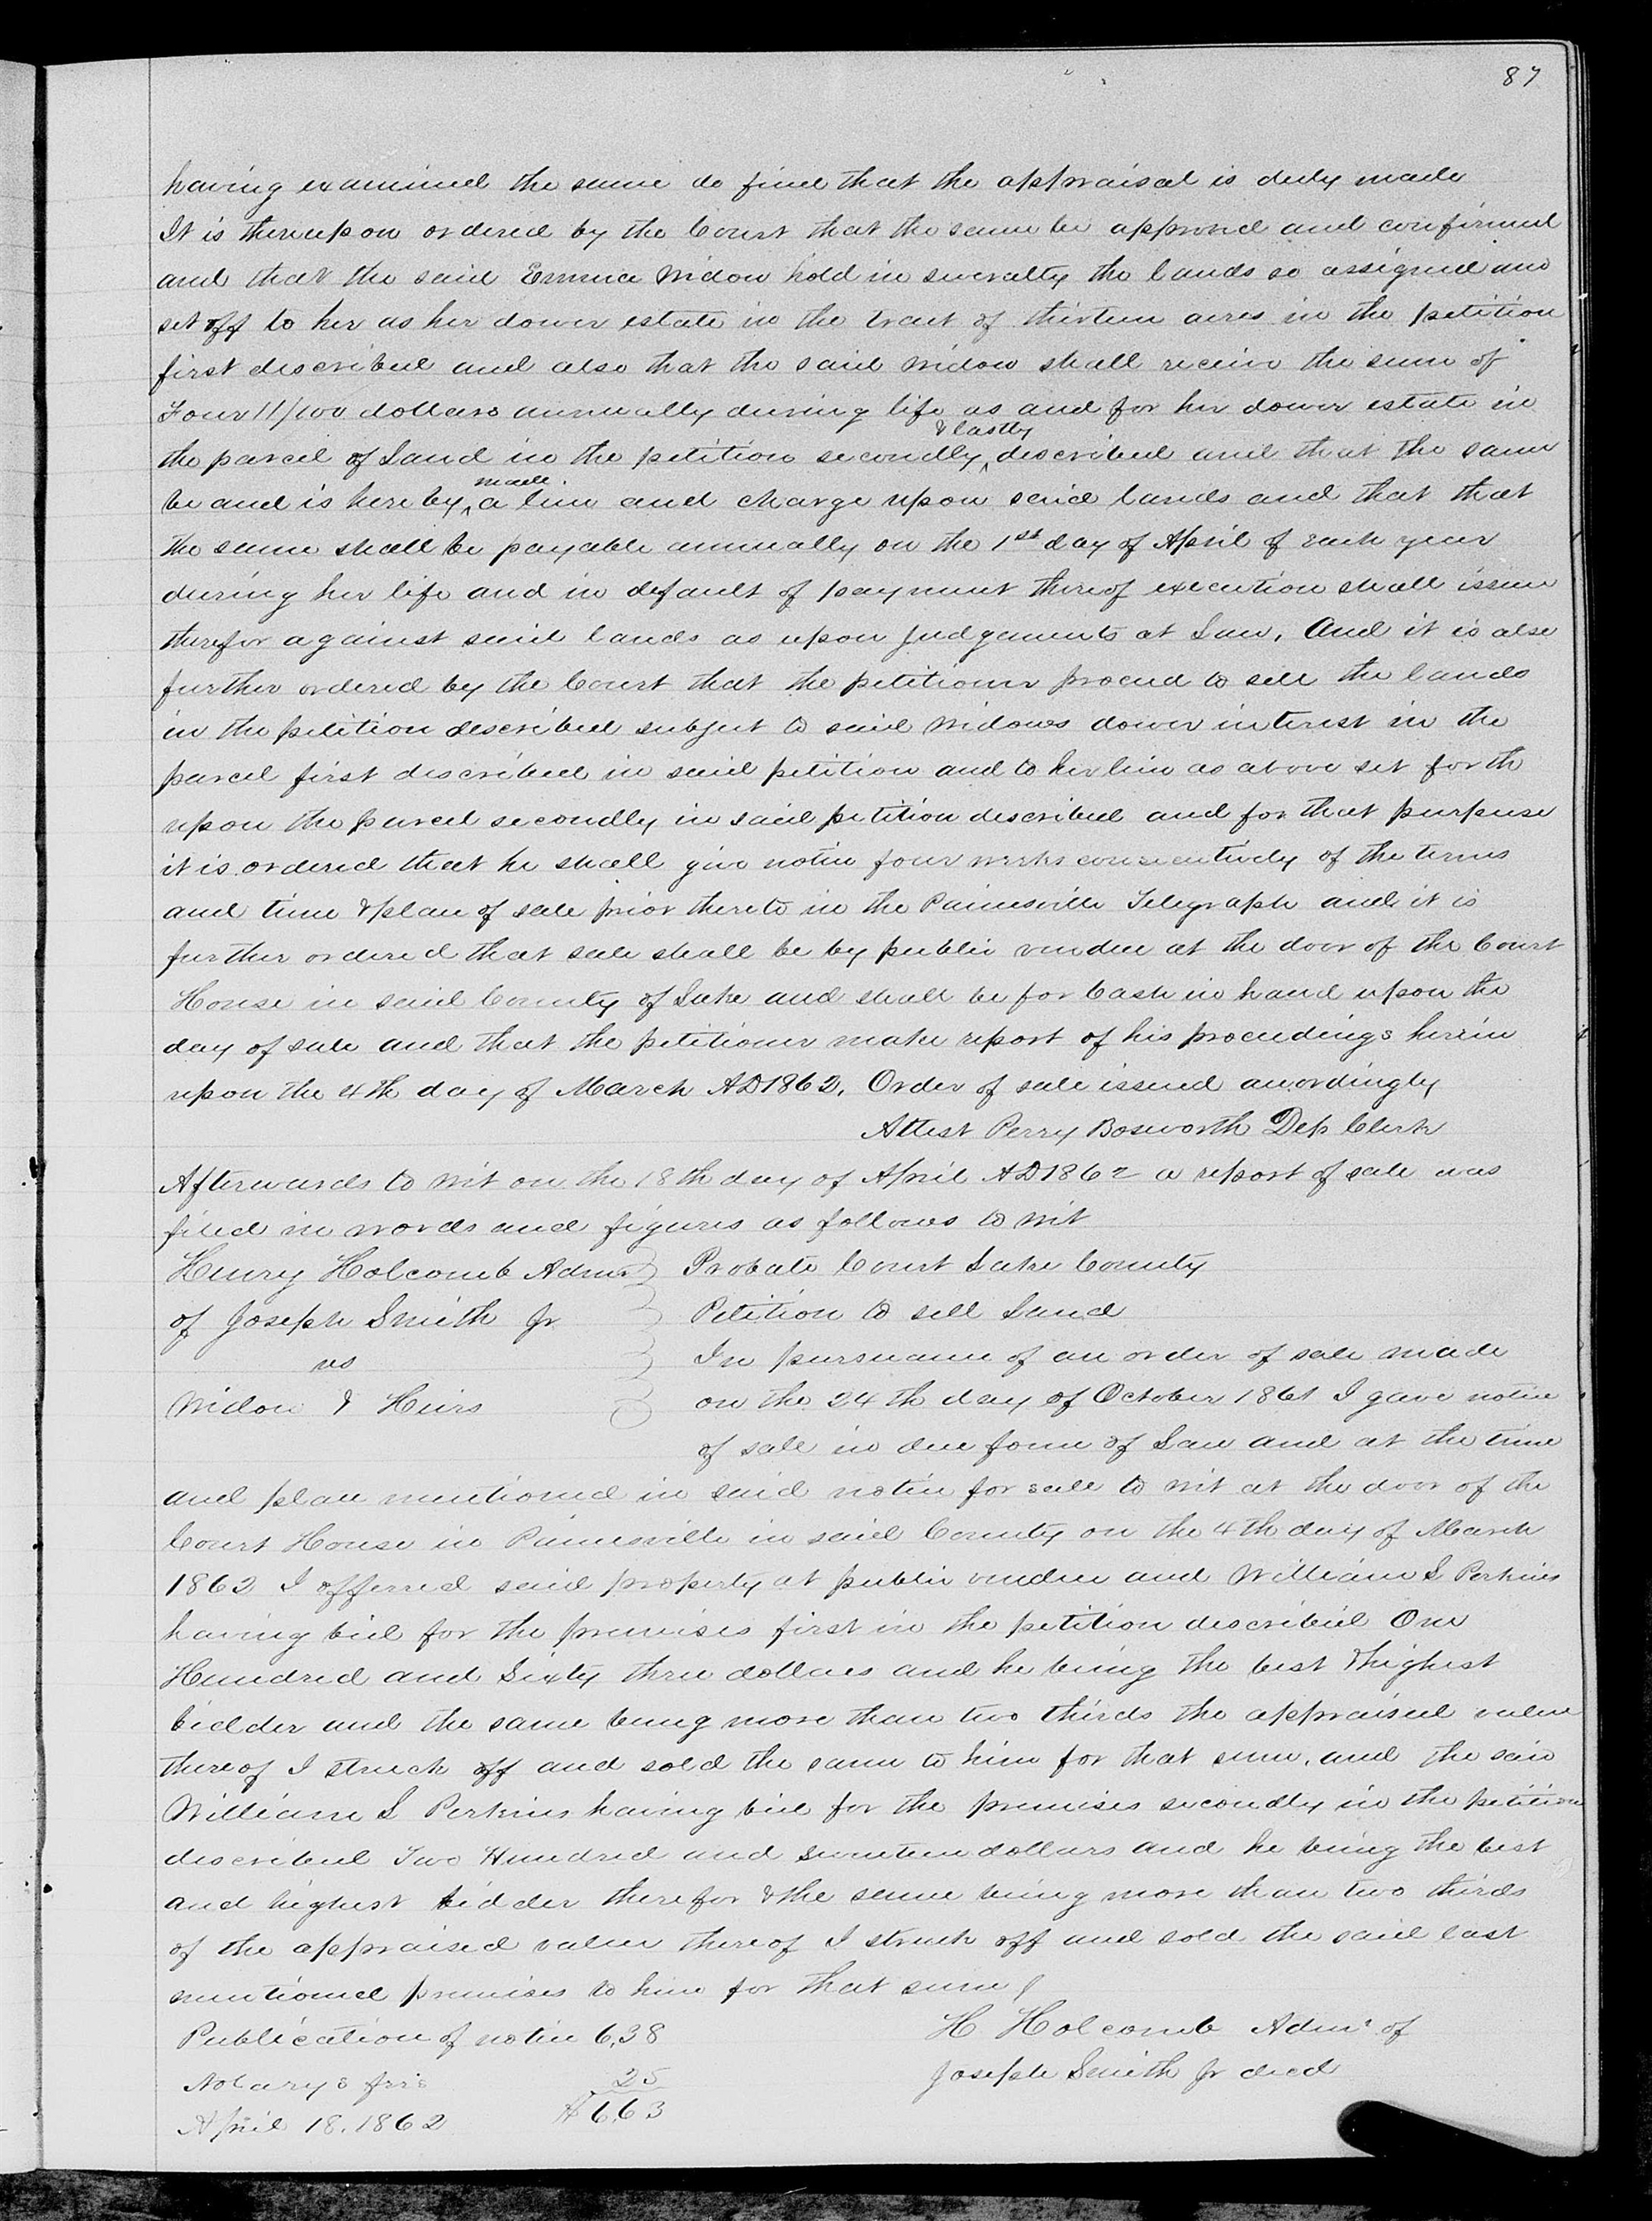 87
having examined the same do find that the appraisal is duly made
It is thereupon ordered by the Court that the same be approved and confirmed
and that the said Emma Widow hold in severalty the lands so assigned and
set off to her as her dower estate in the tract of thirteen acres in the petition
first described and also that the said Widow shall receive the sum of
Four 11/100 dollars annually during life as and for her dower estate in
the parcel of Land in the petition secondly & lastly described and that the same
be and is hereby made a lien and charge upon said lands and that that
the same shall be payable annually on the 1st day of April of each year
during her life and in default of payment thereof execution shall issue
therefor against said lands as upon Judgements at Law. And it is also
further ordered by the Court that the petitioner proceed to sell the lands
in the petition described subject to said Widows dower interest in the
parcel first described in said petition and to her lien as above set forth
upon the parcel secondly in said petition described and for that purpose
it is ordered that he shall give notice four weeks consecutively of the terms
and time & place of sale prior thereto in the Painesville Telegraph and it is
further ordered that sale shall be by public vendue at the door of the Court
House in said County of Lake and shall be for Cash in hand upon the
day of sale and that the petitioner make report of his proceedings herein
upon the 4th day of March AD 1862. Order of sale issued accordingly
Attest Perry Bosworth Dep Clerk
Afterwards to wit on the 18th day of April AD 1862 a report of sale was
filed in words and figures as follows to wit
Henry Holcomb Admr Probate Court Lake County
of Joseph Smith Jr Petition to sell Land
vs In pursuance of an order of sale made
Widow & Heirs on the 24th day of October 1861 I gave notice
of sale in due form of Law and at the time
and place mentioned in said notice for sale to wit at the door of the
Court House in Painesville in said County on the 4th day of March
1862 I offerred said property at public vendue and William L Perkins
having bid for the premises first in the petition described One
Hundred and Sixty three dollars and he being the best & highest
bidder and the same being more than two thirds the appraised value
thereof I struck off and sold the same to him for that sum. and the said
William L Perkins having bid for the premises secondly in the petition
described Two Hundred and Seventeen dollars and he being the best
and highest bidder therefor & the same being more than two thirds
of the appraised value thereof I struck off and sold the said last
mentioned premises to him for that sum
Publication of notice 6.38 H. Holcomb Admr of
Notarys fees 25 Joseph Smith Jr decd
April 18. 1862 $6.63